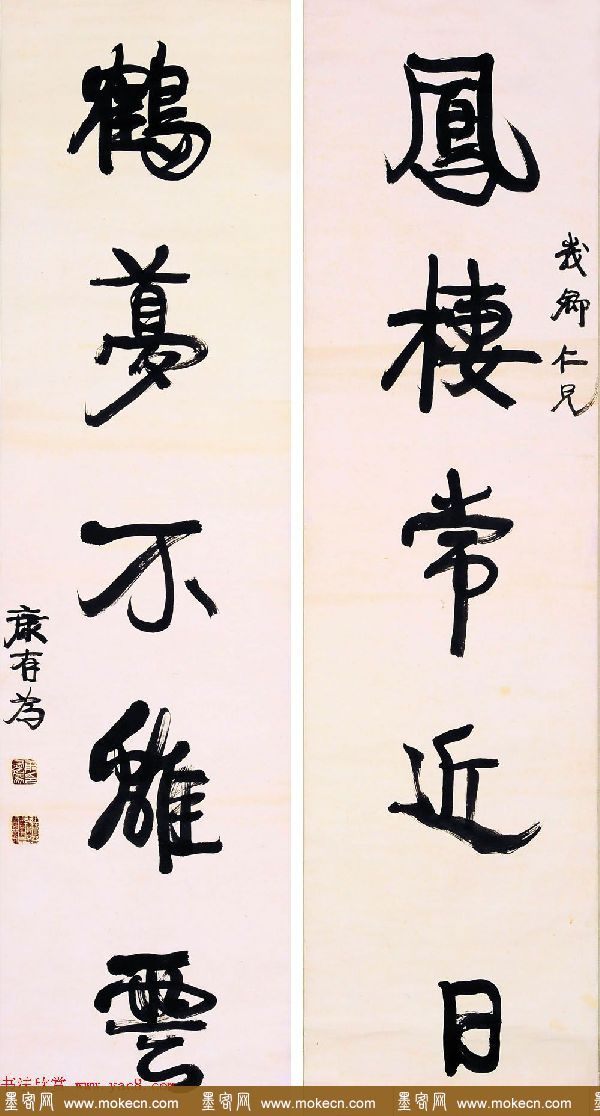 卿仁兄
鳳棲常近日
鶴夢不離雲
康有為
书法欣赏 www.yac8.com
墨客网 www.mokecn.com 墨客网 www.mokecn.com 墨客网 www.mokecn.com